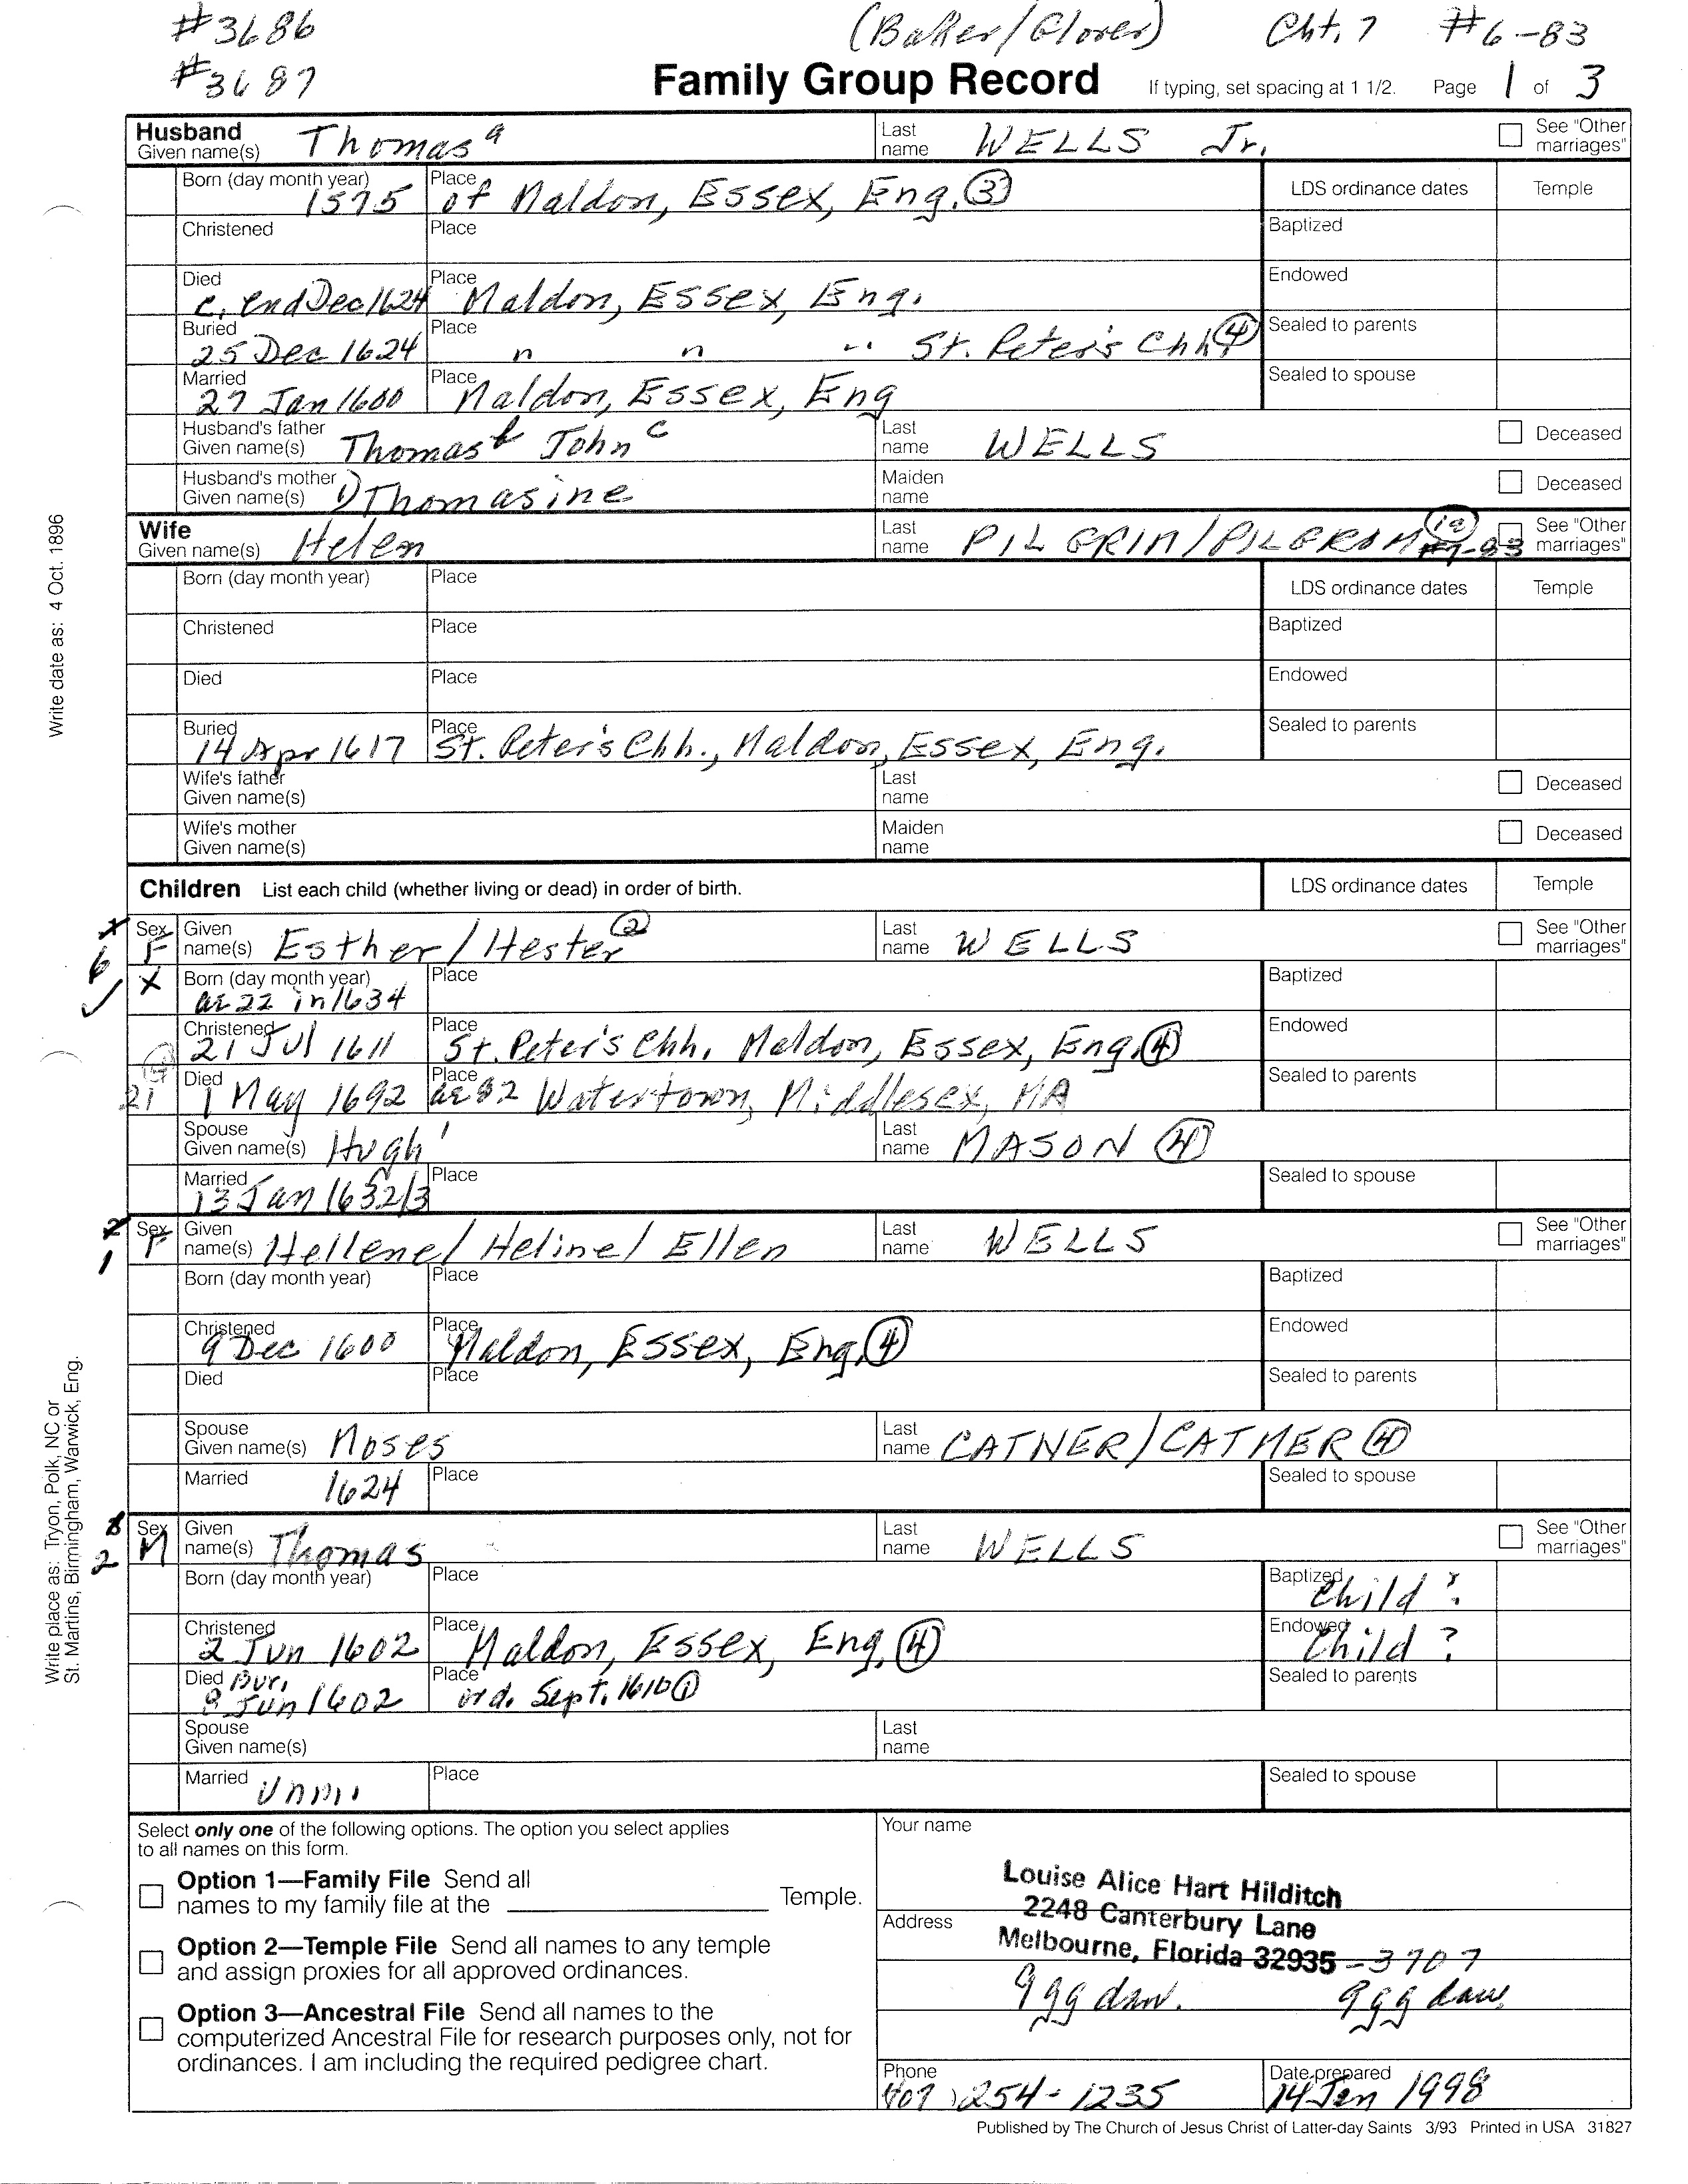 #3686 (Baker/Glover) Cht. 7 #6-83
#3687
Family Group Record If typing, set spacing at 1 1/2. Page 1 of 3
Husband
Given name(s) Thomas a Last name WELLS Jr. See "Other marriages"
Born (day month year) 1575 Place of Maldon, Essex, Eng. (3) LDS ordinance dates Temple
Christened Place Baptized
Died c. end Dec 1624 Place Maldon, Essex, Eng. Endowed
Buried 25 Dec 1624 Place " " " St. Peter's Chh (4) Sealed to parents
Married 27 Jan 1600 Place Maldon, Essex, Eng Sealed to spouse
Husband's father
Given name(s) Thomas b John c Last name WELLS Deceased
Husband's mother
Given name(s) 1) Thomasine Maiden name Deceased
Wife
Given name(s) Helen Last name PILGRIM/PILGROM (1a) #7-83 See "Other marriages"
Born (day month year) Place LDS ordinance dates Temple
Christened Place Baptized
Died Place Endowed
Buried 14 Apr 1617 Place St. Peter's Chh., Maldon, Essex, Eng. Sealed to parents
Wife's father
Given name(s) Last name Deceased
Wife's mother
Given name(s) Maiden name Deceased
Children List each child (whether living or dead) in order of birth. LDS ordinance dates Temple
x 6 Sex F Given name(s) Esther/Hester (2) Last name WELLS See "Other marriages"
X Born (day month year) ae 22 in 1634 Place Baptized
Christened 21 Jul 1611 Place St. Peter's Chh. Maldon, Essex, Eng. (4) Endowed
21 Died 1 May 1692 Place ae 82 Watertown, Middlesex, MA Sealed to parents
Spouse
Given name(s) Hugh 1 Last name MASON (4)
Married 13 Jan 1632/3 Place Sealed to spouse
1 Sex F Given name(s) Hellene/Heline/Ellen Last name WELLS See "Other marriages"
Born (day month year) Place Baptized
Christened 9 Dec 1600 Place Maldon, Essex, Eng. (4) Endowed
Died Place Sealed to parents
Spouse
Given name(s) Moses Last name CATNER/CATMER (4)
Married 1624 Place Sealed to spouse
2 Sex M Given name(s) Thomas Last name WELLS See "Other marriages"
Born (day month year) Place Baptized Child?
Christened 2 Jun 1602 Place Maldon, Essex, Eng. (4) Endowed Child?
Died Bur. 8 Jun 1602 Place ord. Sept. 1616 (1) Sealed to parents
Spouse
Given name(s) Last name
Married Unm. Place Sealed to spouse
Select only one of the following options. The option you select applies
to all names on this form.
Option 1—Family File Send all
names to my family file at the Temple.
Option 2—Temple File Send all names to any temple
and assign proxies for all approved ordinances.
Option 3—Ancestral File Send all names to the
computerized Ancestral File for research purposes only, not for
ordinances. I am including the required pedigree chart.
Your name
Louise Alice Hart Hilditch
Address 2248 Canterbury Lane
Melbourne, Florida 32935-3707
9 gg dau. 9 gg dau.
Phone 407) 254-1235 Date prepared 14 Jan 1998
Published by The Church of Jesus Christ of Latter-day Saints 3/93 Printed in USA 31827
Write date as: 4 Oct. 1896
Write place as: Tryon, Polk, NC or
St. Martins, Birmingham, Warwick, Eng.